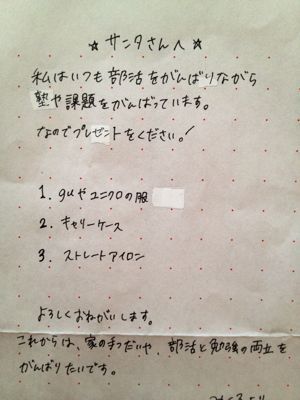 ☆ サンタさんへ ☆
私はいつも部活をがんばりながら
塾や課題をがんばっています。
なのでプレゼントをください。！
1. guやユニクロの服
2. キャリーケース
3. ストレートアイロン
よろしくおねがいします。
これからは、家の手つだいや、部活と勉強の両立を
がんばりたいです。